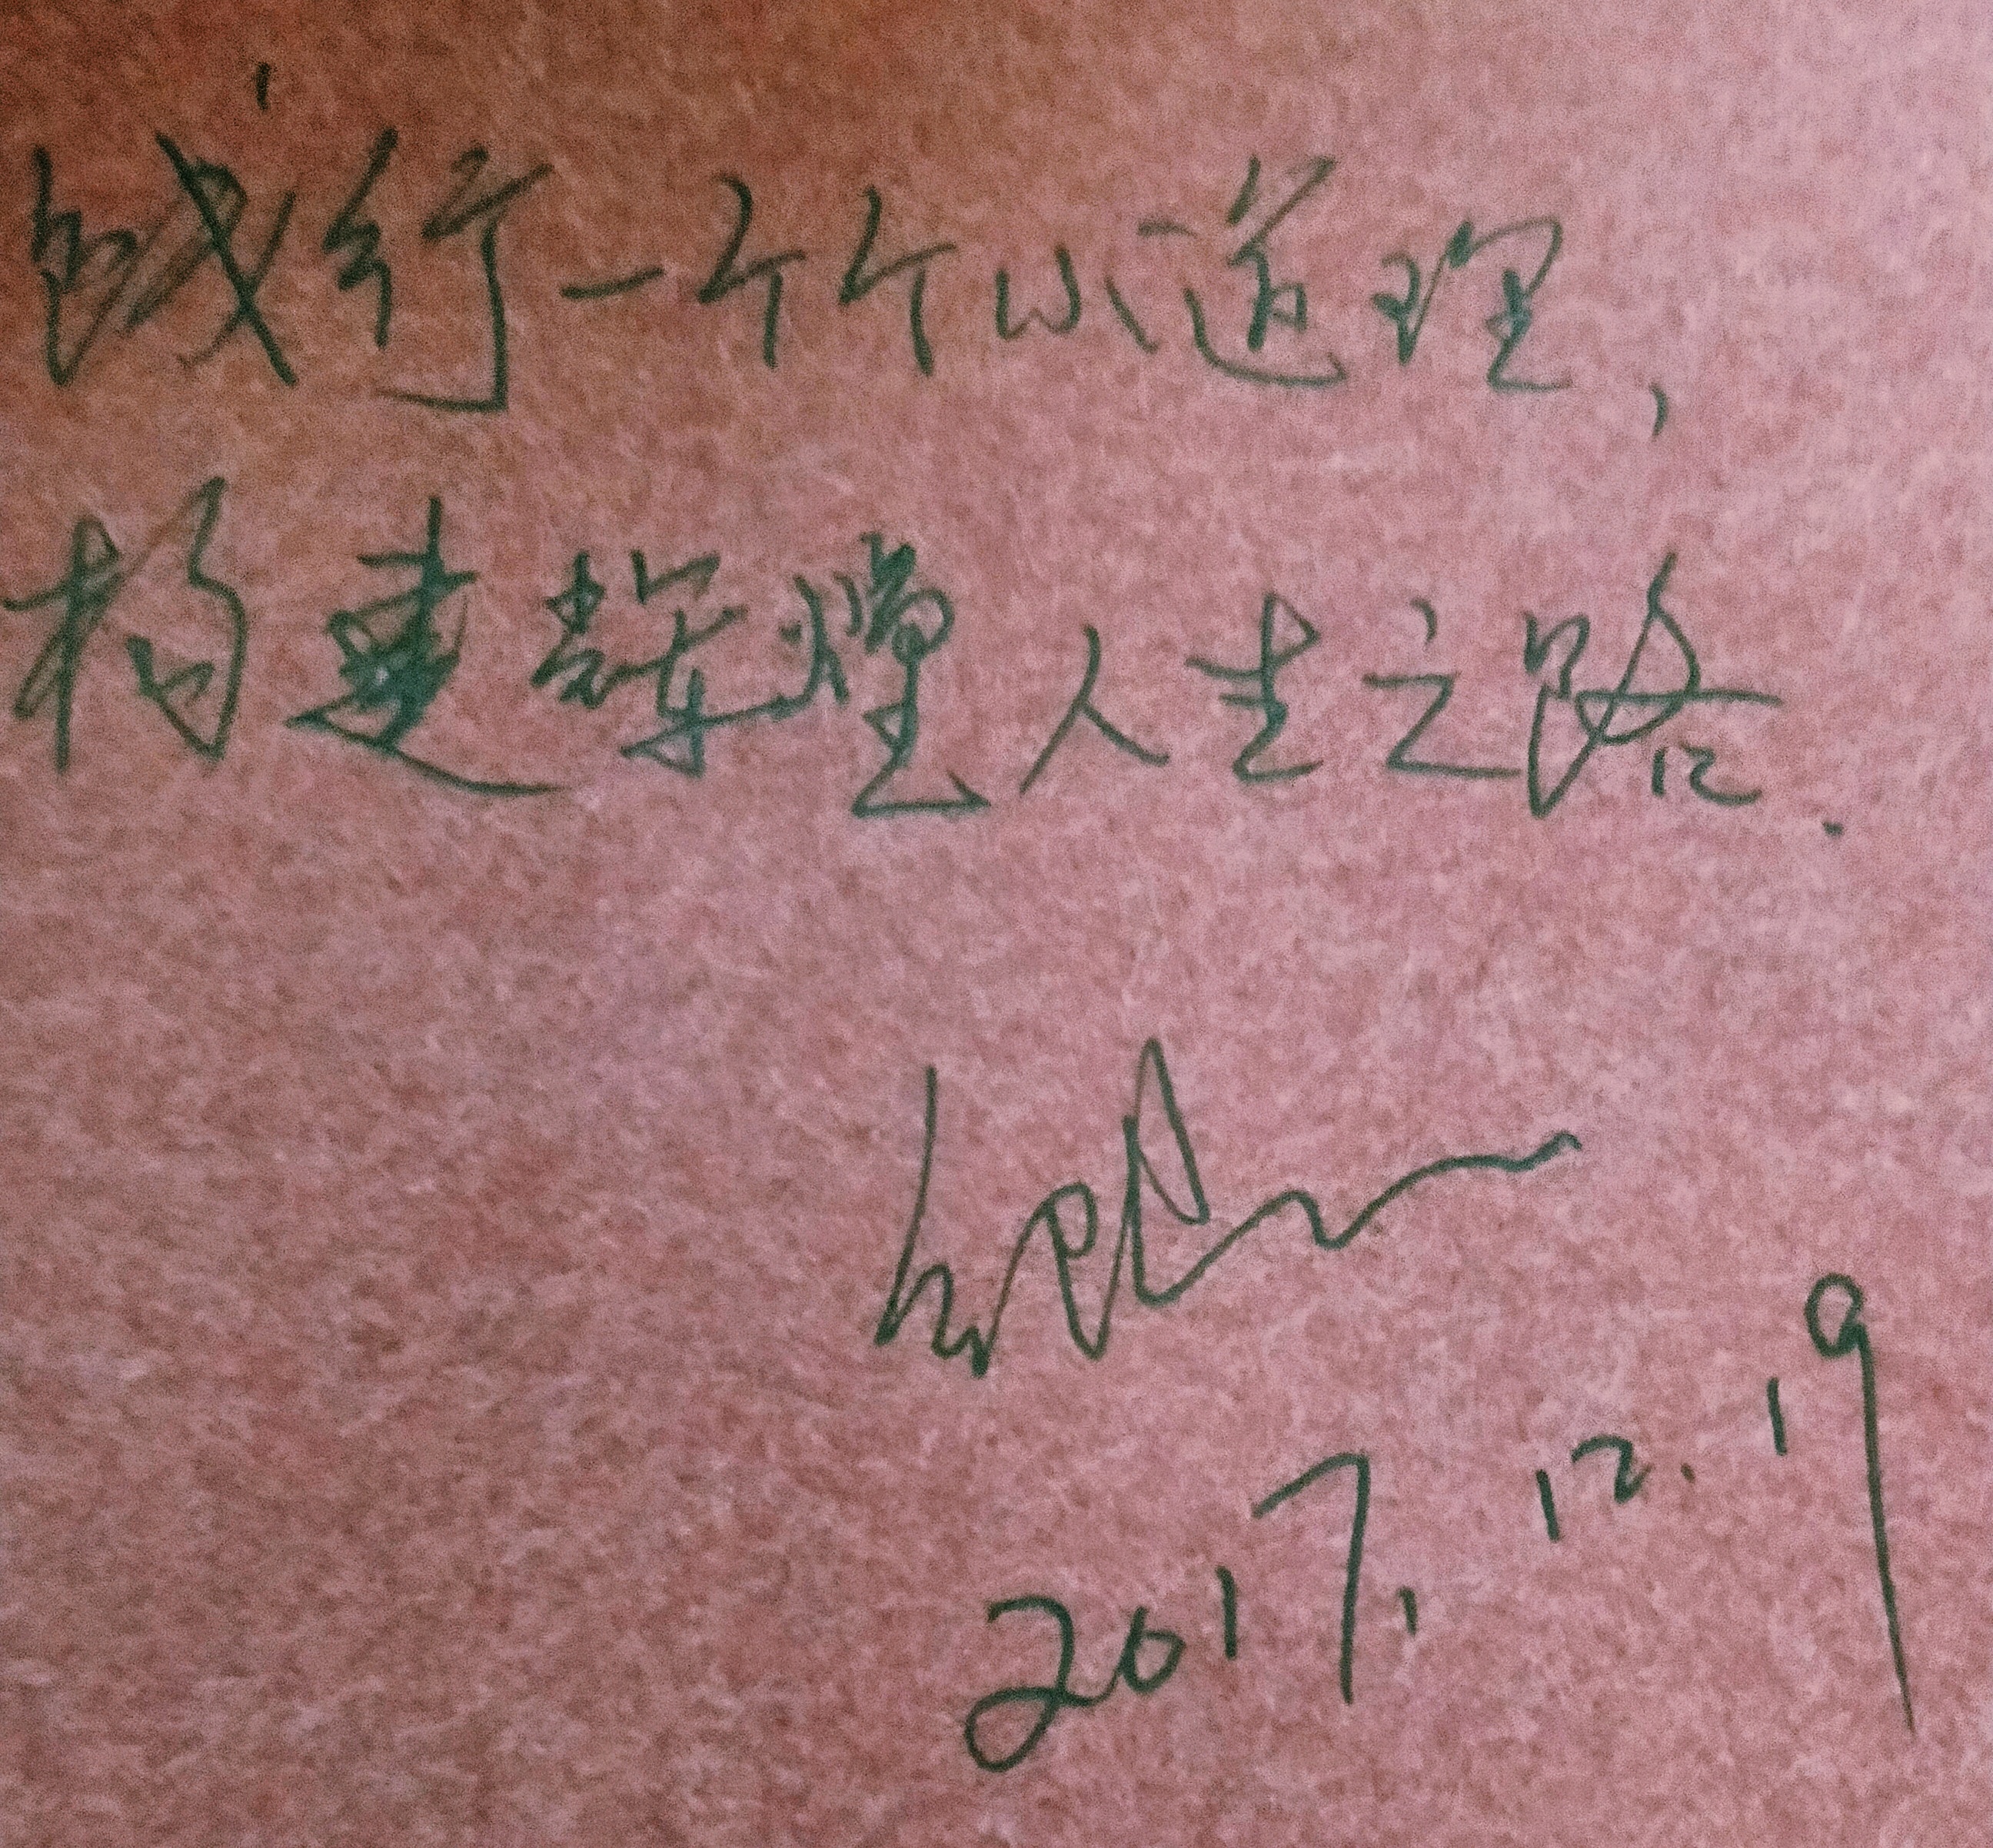 践行一个个小道理，
构建辉煌人生之路.
2017.12.19